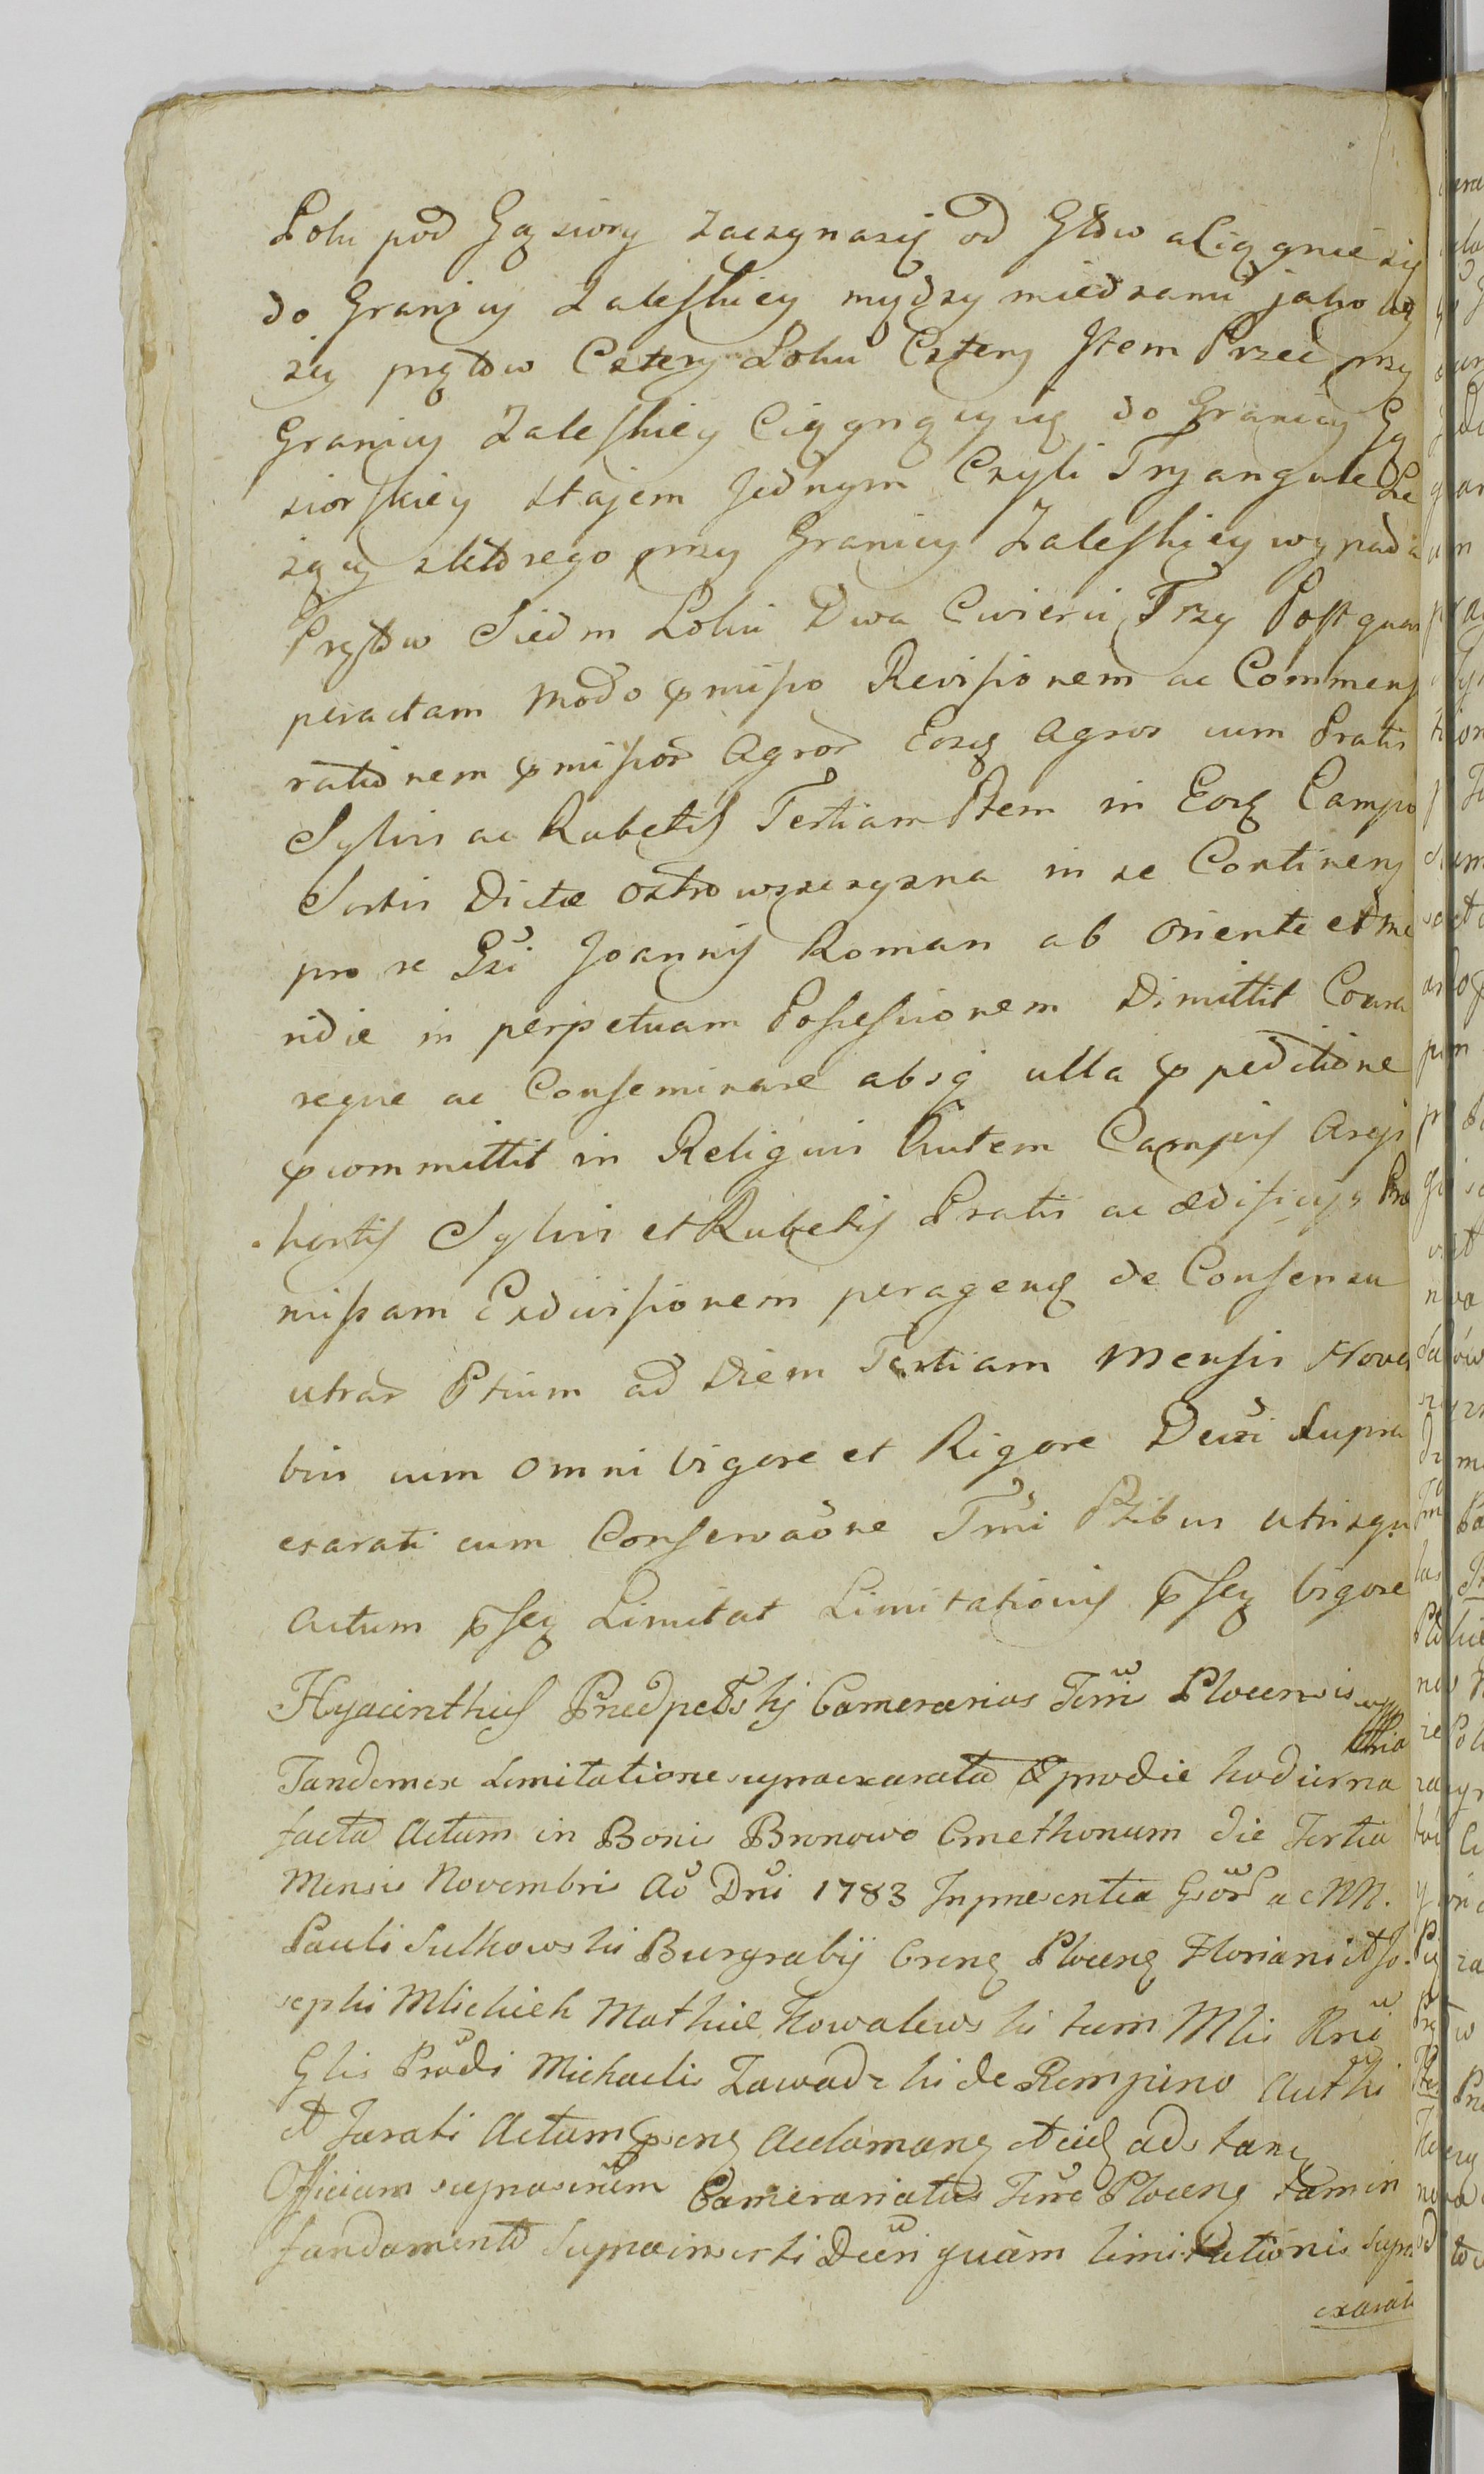 Polu pod Gąsiory zaczynasię od Głów aCiągnie się
do Granicy Zaleskiey myędzy miedzami jako
prętów Cztery Łokci Cztery Item Przeć przy
Granicy Zaleskiey Ciągnącyię do Granicy Gą
siorskiey Stajem Jednym Czyli Tryangule Le
zącey zktórego przy Granicy Zaleskiey wypada
Prętów Siedm Łokci Dwa Cwierci Trzy Postquam
peractam modo pmisso Revisionem ac Commens
rationem pmissor Agror Eosq Agros cum Pratis
Sylvis ac Rubetis Tertiam Ptem in Eosq Campo
Sortis Dictæ Ostrowszczyzna in se Continens
pro se Gsi Joannis Roman ab Oriente et me
ridie in perpetuam Possessionem Dimittit
reque ac Conseminare absq ulla ppeditione
pcommittit in Reliquis Autem Campis Areis
hortis Sylvis et Rubetis Pratis ac ædificijs Præ
missam Exdivisionem peragens de Consensu
utrar Ptium ad Diem Tertiam Mensis Novem
bris cum omni Vigore et Rigore Decti Supra
exarati cum Conservaõne Tmi Ptibus utrisqu
Actum pseq Limitat Limitationis pseq Vigore
Hyacinthus Przedpełski Camerarius Terræ Plocensis
Tandem ex Limitatione supraexarata pro die hodierna
facta Actum in Bonis Bronowo Cmethonum die Tertia
Mensis Novembris Ao Dni 1783 In præsentia Gsor ac NN.
Pauli Sulkowski Burgrabij Crens Plocens Floriani et Jo
sephi Mlichich Mathiæ Kowalewski tum Mlis Rni
Glis Prodi Michaelis Zawadzki de Rempino Authi
et Jurati Actum psens Acclamans et eid adstans
Officium suprascrium Camerariatus Terræ Plocens tam in
fundamento Supra inserti Decti quàm limitationis supra
exarati